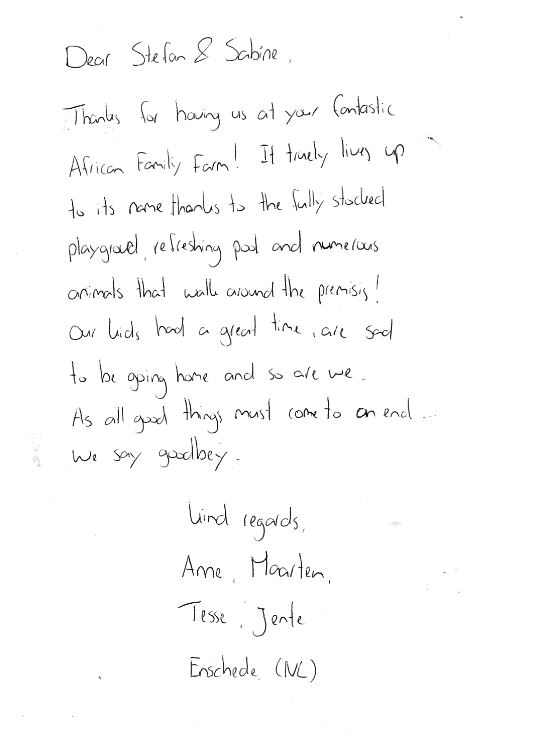 Dear Stefan & Sabine,
Thanks for having us at your fantastic
African Family Farm! It truely lives up
to its name thanks to the fully stocked
playgroud, refreshing pool and numerous
animals that walk around the premisis!
Our kids had a great time, are sad
to be going home and so are we.
As all good things must come to an end...
We say goodbey.
kind regards,
Anne, Maarten,
Tesse, Jente
Enschede (NL)